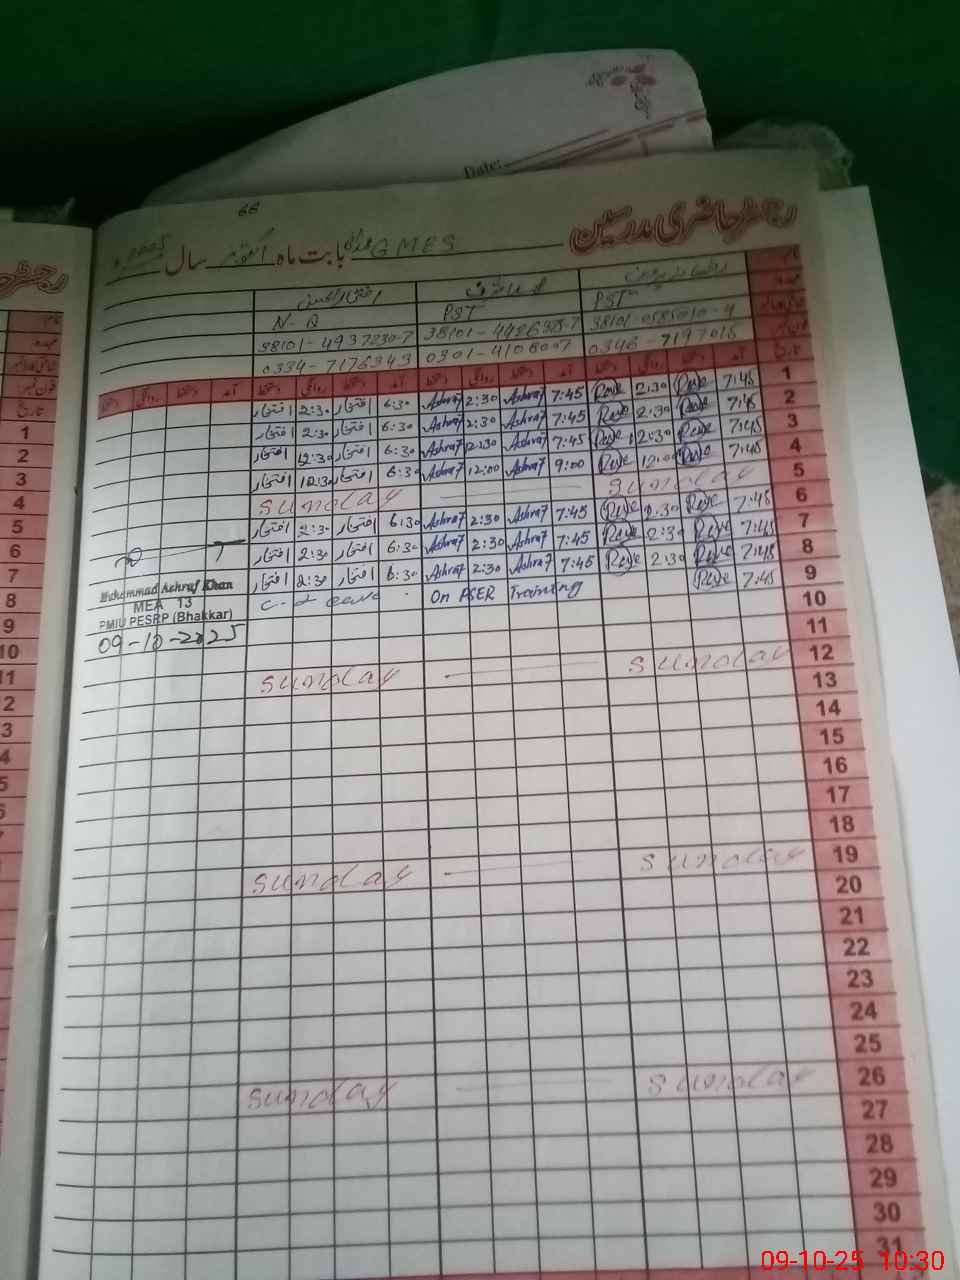 Date:
66
رجسٹر حاضری مدرسین
GMES بابت ماہ اکتوبر سال 2025
نام
PST PST N-Q
38101-0585010-4 38101-4486385-7 38101-4937230-7
0346-7197015 0301-4108007 0334-7176343
تاریخ آمد دستخط روانگی دستخط آمد دستخط روانگی دستخط آمد دستخط روانگی دستخط آمد دستخط روانگی دستخط
1 7:45 2:30 7:45 Ashraf 2:30 Ashraf 6:30 افتخار 2:30 افتخار
2 7:45 2:30 7:45 Ashraf 2:30 Ashraf 6:30 افتخار 2:30 افتخار
3 7:45 12:30 7:45 Ashraf 12:30 Ashraf 6:30 افتخار 12:30 افتخار
4 7:45 12:00 9:00 Ashraf 12:00 Ashraf 6:30 افتخار 12:30 افتخار
5 Sunday Sunday
6 7:45 2:30 7:45 Ashraf 2:30 Ashraf 6:30 افتخار 2:30 افتخار
7 7:45 2:30 7:45 Ashraf 2:30 Ashraf 6:30 افتخار 2:30 افتخار
8 7:45 2:30 7:45 Ashraf 2:30 Ashraf 6:30 افتخار 2:30 افتخار
9 7:45 On PSER Training C-Leave
10
11
12 Sunday Sunday
13
14
15
16
17
18
19 Sunday Sunday
20
21
22
23
24
25
26 Sunday Sunday
27
28
29
30
31
Muhammad Ashraf Khan
MEA 13
PMIU PESRP (Bhakkar)
09-10-2025
رجسٹر
نام
تاریخ
1
2
3
4
5
6
7
8
9
10
11
2
3
4
5
09-10-25 10:30